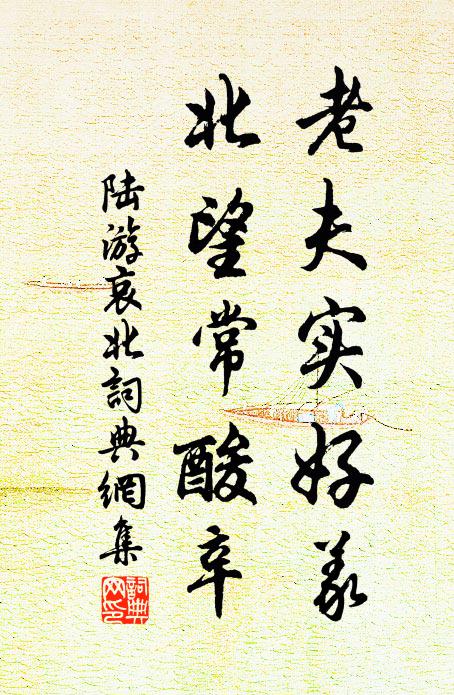 老夫实好义
北望常酸辛
陆游哀北詞典網集
詞典
网印